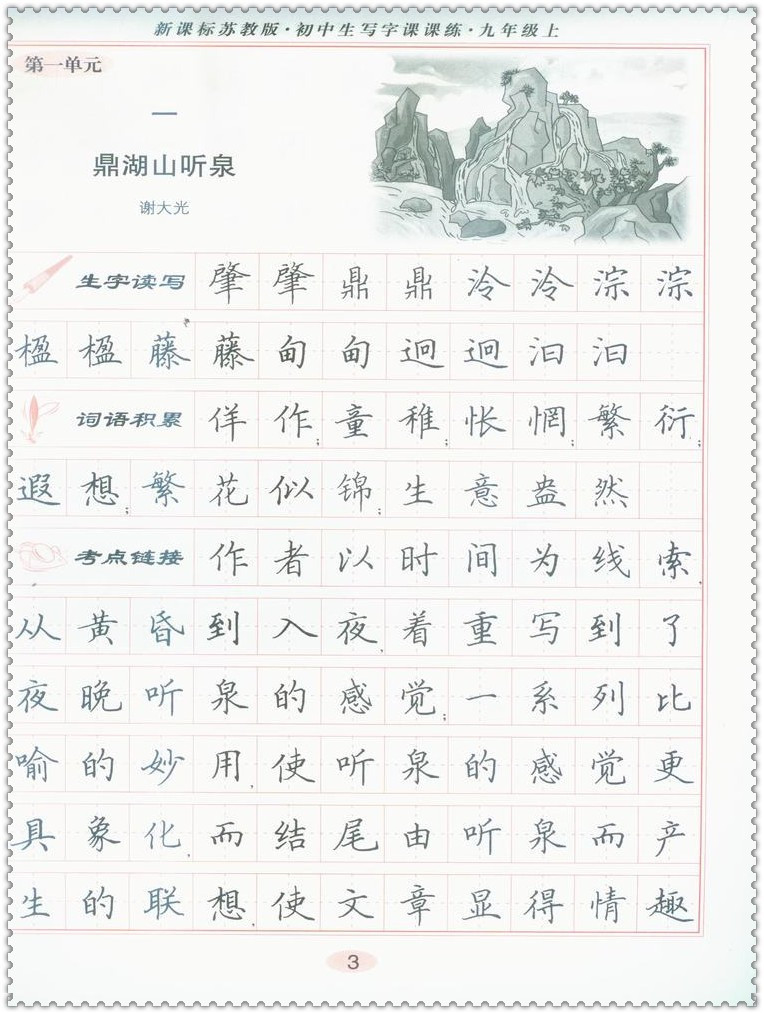 新课标苏教版·初中生写字课课练·九年级上
第一单元
一
鼎湖山听泉
谢大光
生字读写 肇 肇 鼎 鼎 泠 泠 淙 淙
楹 楹 藤 藤 甸 甸 迥 迥 汩 汩
词语积累 佯作;童稚;怅惘;繁衍;
遐想;繁花似锦;生意盎然
考点链接 作者以时间为线索,
从黄昏到入夜,着重写到了
夜晚听泉的感觉;一系列比
喻的妙用,使听泉的感觉更
具象化,而结尾由听泉而产
生的联想,使文章显得情趣
3